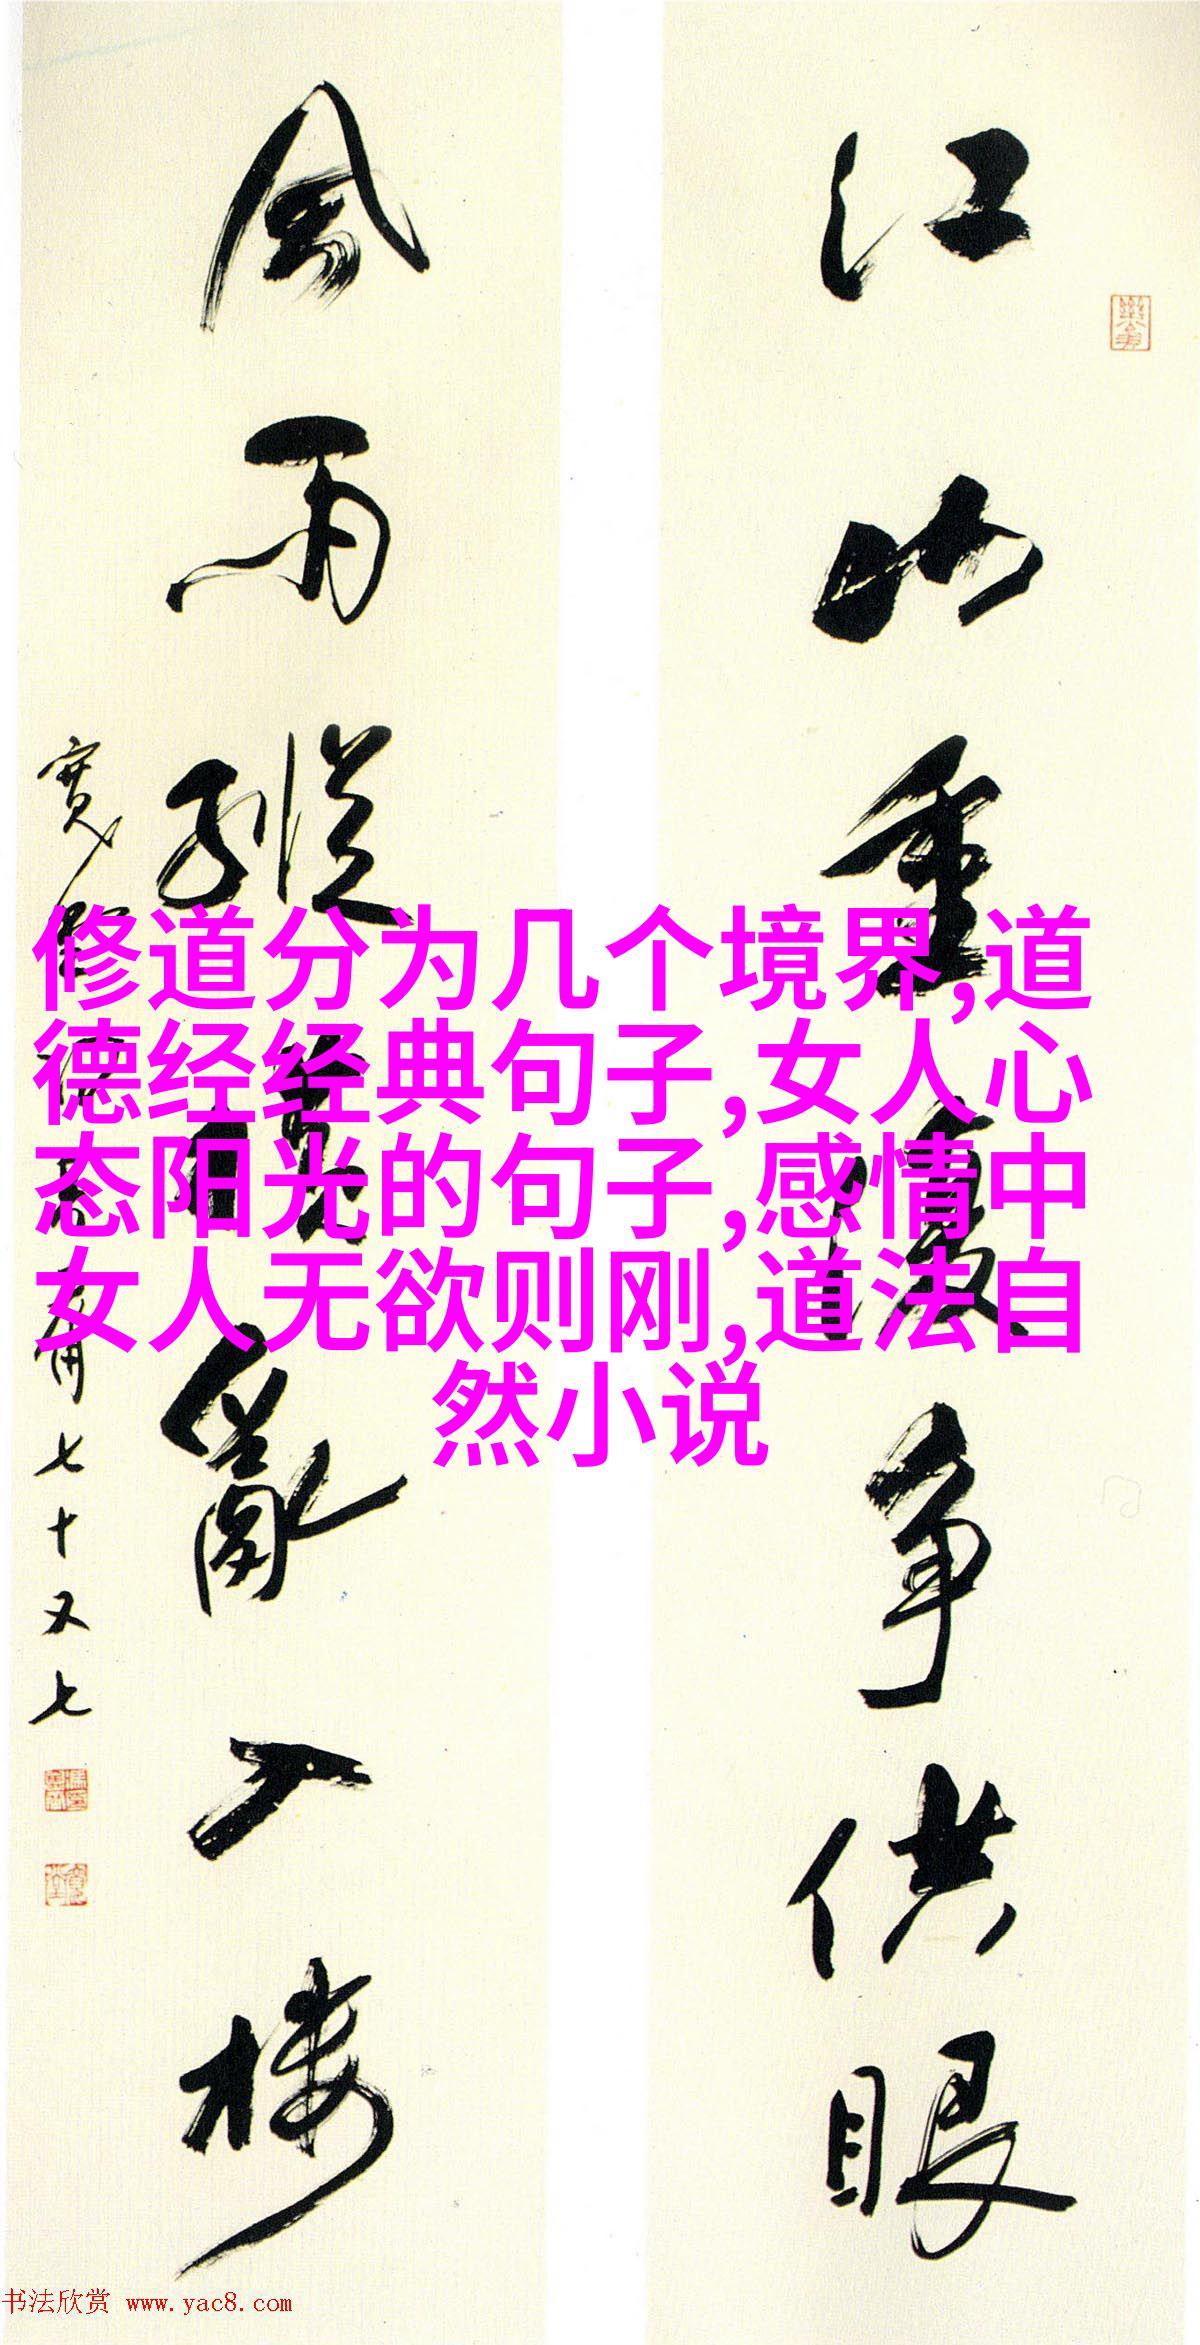 江山重複争供眼
風雨縱横亂入樓
七十又七
修道分为几个境界,道
德经经典句子,女人心
态阳光的句子,感情中
女人无欲则刚,道法自
然小说
书法欣赏 www.yac8.com